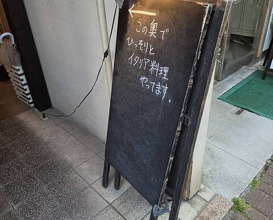 この奥で
ひっそりと
イタリア料理
やってます。